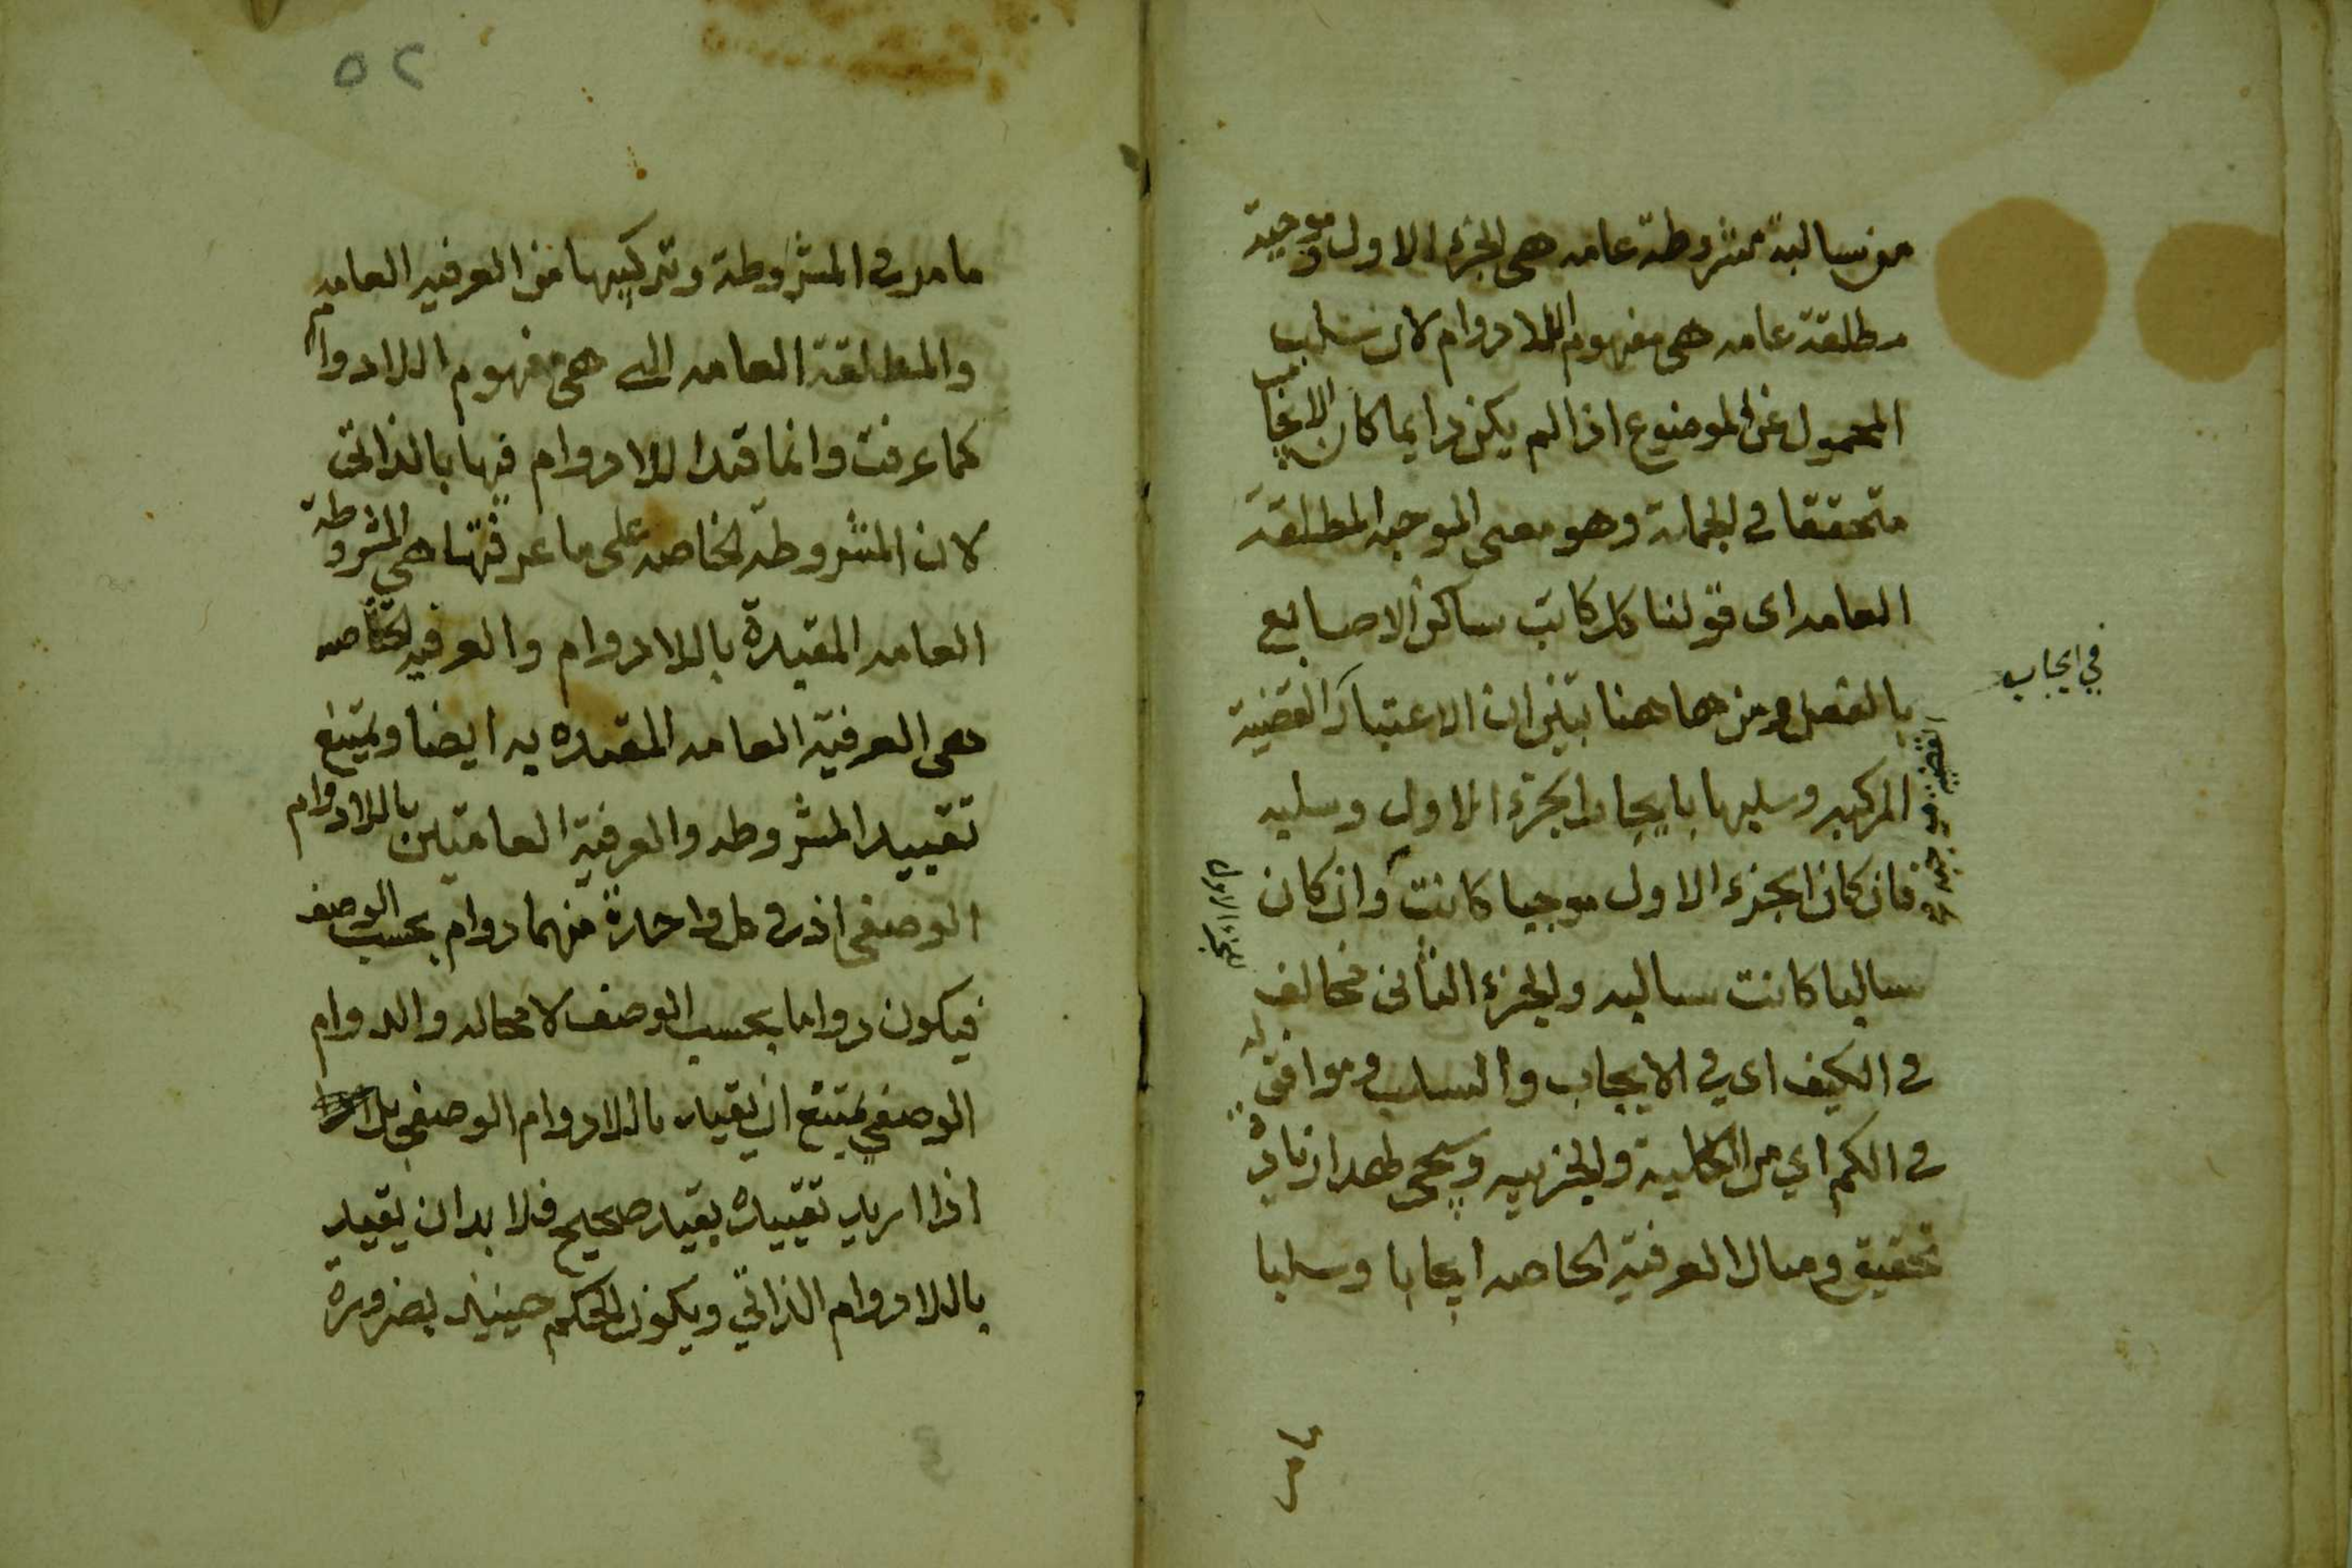 من سالبة مشروطة عامه هي الجزء الاول وموجبة
مطلقة عامه هي مفهوم اللادوام لان سلب
المحمول عن الموضوع اذا لم يكن دايما كان الايجاب
متحققا في الجملة وهو معنى الموجبه المطلقة
العامه اى قولنا كل كاتب ساكن الاصابع
بالفعل ومن هاهنا تبين ان الاعتبار القضية
المركبه وسلبها بايجاب الجزء الاول وسلبه
فان كان الجزء الاول موجبا كانت وان كان
سالبا كانت سالبه والجزء الثاني مخالف له
في الكيف اى في الايجاب والسلب وموافق
في الكم اي من الكلية والجزييه وسيجي لهذا زيادة
تحقيق ومثال العرفية الخاصه ايجابا وسلبا
في ايجاب
الجزء الاول
ما مر
٥٢
ما مر في المشروطة وتركيبها من العرفيه العامه
والمطلقة العامه التى هي مفهوم اللادوام
كما عرفت وانما قيد اللادوام فيها بالذاتى
لان المشروطه الخاصه على ما عرفتها هي المشروطة
العامه المقيدة باللادوام والعرفيه الخاصه
هى العرفية العامه المقيده به ايضا ويمتنع
تقييد المشروطه والعرفية العامتين باللادوام
الوصفى اذ في كل واحدة منهما دوام بحسب الوصف
فيكون دواما بحسب الوصف لا محاله والدوام
الوصفي يمتنع ان يقيد باللادوام الوصفي بل
اذا اريد تقييده بقيد صحيح فلا بد ان يقيد
باللادوام الذاتي ويكون الحكم حينيذ بضرورة